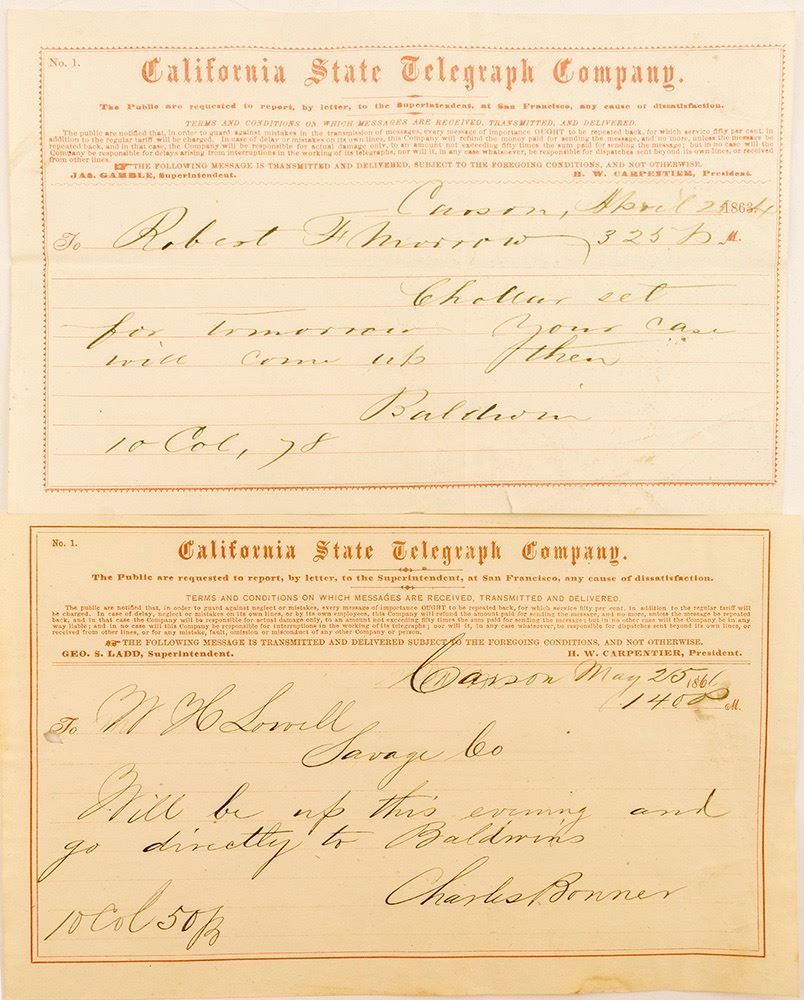 No. 1.
California State Telegraph Company.
The Public are requested to report, by letter, to the Superintendent, at San Francisco, any cause of dissatisfaction.
TERMS AND CONDITIONS ON WHICH MESSAGES ARE RECEIVED, TRANSMITTED, AND DELIVERED.
The public are notified that, in order to guard against mistakes in the transmission of messages, every message of importance OUGHT to be repeated back, for which service fifty per cent. in
addition to the regular tariff will be charged. In case of delay or mistakes on its own lines, this Company will refund the money paid for sending the message, and no more, unless the message be
repeated back, and in that case, the Company will be responsible for actual damage only, to an amount not exceeding fifty times the sum paid for sending the message; but in no case will the
Company be responsible for delays arising from interruptions in the working of its telegraphs, nor will it, in any case whatsoever, be responsible for dispatches sent beyond its own lines, or received
from other lines.
☞ THE FOLLOWING MESSAGE IS TRANSMITTED AND DELIVERED, SUBJECT TO THE FOREGOING CONDITIONS, AND NOT OTHERWISE.
JAS. GAMBLE, Superintendent. H. W. CARPENTIER, President.
Carson, April 25 1863.4
To Robert F Morrow 325 P M.
Chollar set
for tomorrow Your case
will come up then
Baldwin
10 Col, 78
No. 1.
California State Telegraph Company.
The Public are requested to report, by letter, to the Superintendent, at San Francisco, any cause of dissatisfaction.
TERMS AND CONDITIONS ON WHICH MESSAGES ARE RECEIVED, TRANSMITTED AND DELIVERED.
The public are notified that, in order to guard against neglect or mistakes, every message of importance OUGHT to be repeated back, for which service fifty per cent. in addition to the regular tariff will
be charged. In case of delay, neglect or mistakes on its own lines, or by its own employees, this Company will refund the amount paid for sending the message, and no more, unless the message be repeated
back, and in that case the Company will be responsible for actual damage only, to an amount not exceeding fifty times the sum paid for sending the message; but in no other case will the Company be in any
way liable; and in no case will this Company be responsible for interruptions in the working of its telegraphs; nor will it, in any case whatsoever, be responsible for dispatches sent beyond its own lines, or
received from other lines, or for any mistake, fault, omission or misconduct of any other Company or person.
☞ THE FOLLOWING MESSAGE IS TRANSMITTED AND DELIVERED SUBJECT TO THE FOREGOING CONDITIONS, AND NOT OTHERWISE.
GEO. S. LADD, Superintendent. H. W. CARPENTIER, President.
Carson May 25 186
140 P M.
To W H Lowell
Savage Co
Will be up this evening and
go directly to Baldwins
Charles Bonner
10 Col 50